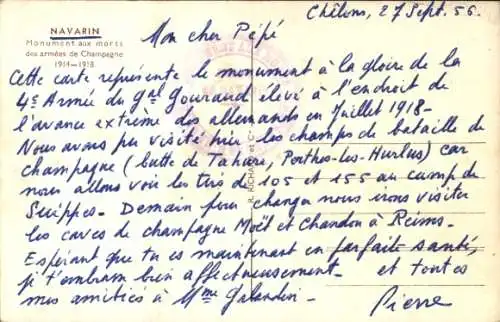 Châlons, 27 Sept. 56.
NAVARIN
Monument aux morts
des armées de Champagne
1914-1918
Mon cher Pépé
Cette carte représente le monument à la gloire de la
4e Armée du Gal Gouraud élevé à l'endroit de
l'avance extrême des allemands en Juillet 1918-
Nous avons pu visiter hier les champs de bataille de
champagne (butte de Tahure, Perthes-les-Hurlus) car
nous allons voir les tirs de 105 et 155 au camp de
Suippes- Demain pour changer nous irons visiter
les caves de champagne Moët et Chandon à Reims-
Espérant que tu es maintenant en parfaite santé,
je t'embrasse bien affectueusement- et toutes
mes amitiés à Mme
Pierre